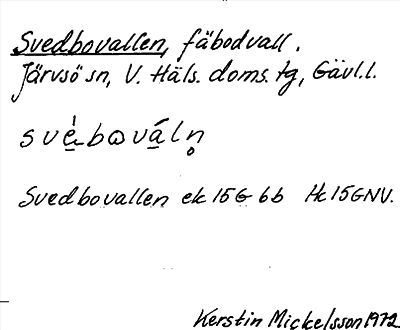 Svedbovallen, fäbodvall.
Järvsö sn, V. Häls. doms. tg, Gävl.l.
svè̱bωvá̱ln̥
Svedbovallen ek 15G 6b Hk 15GNV.
Kerstin Mickelsson 1972